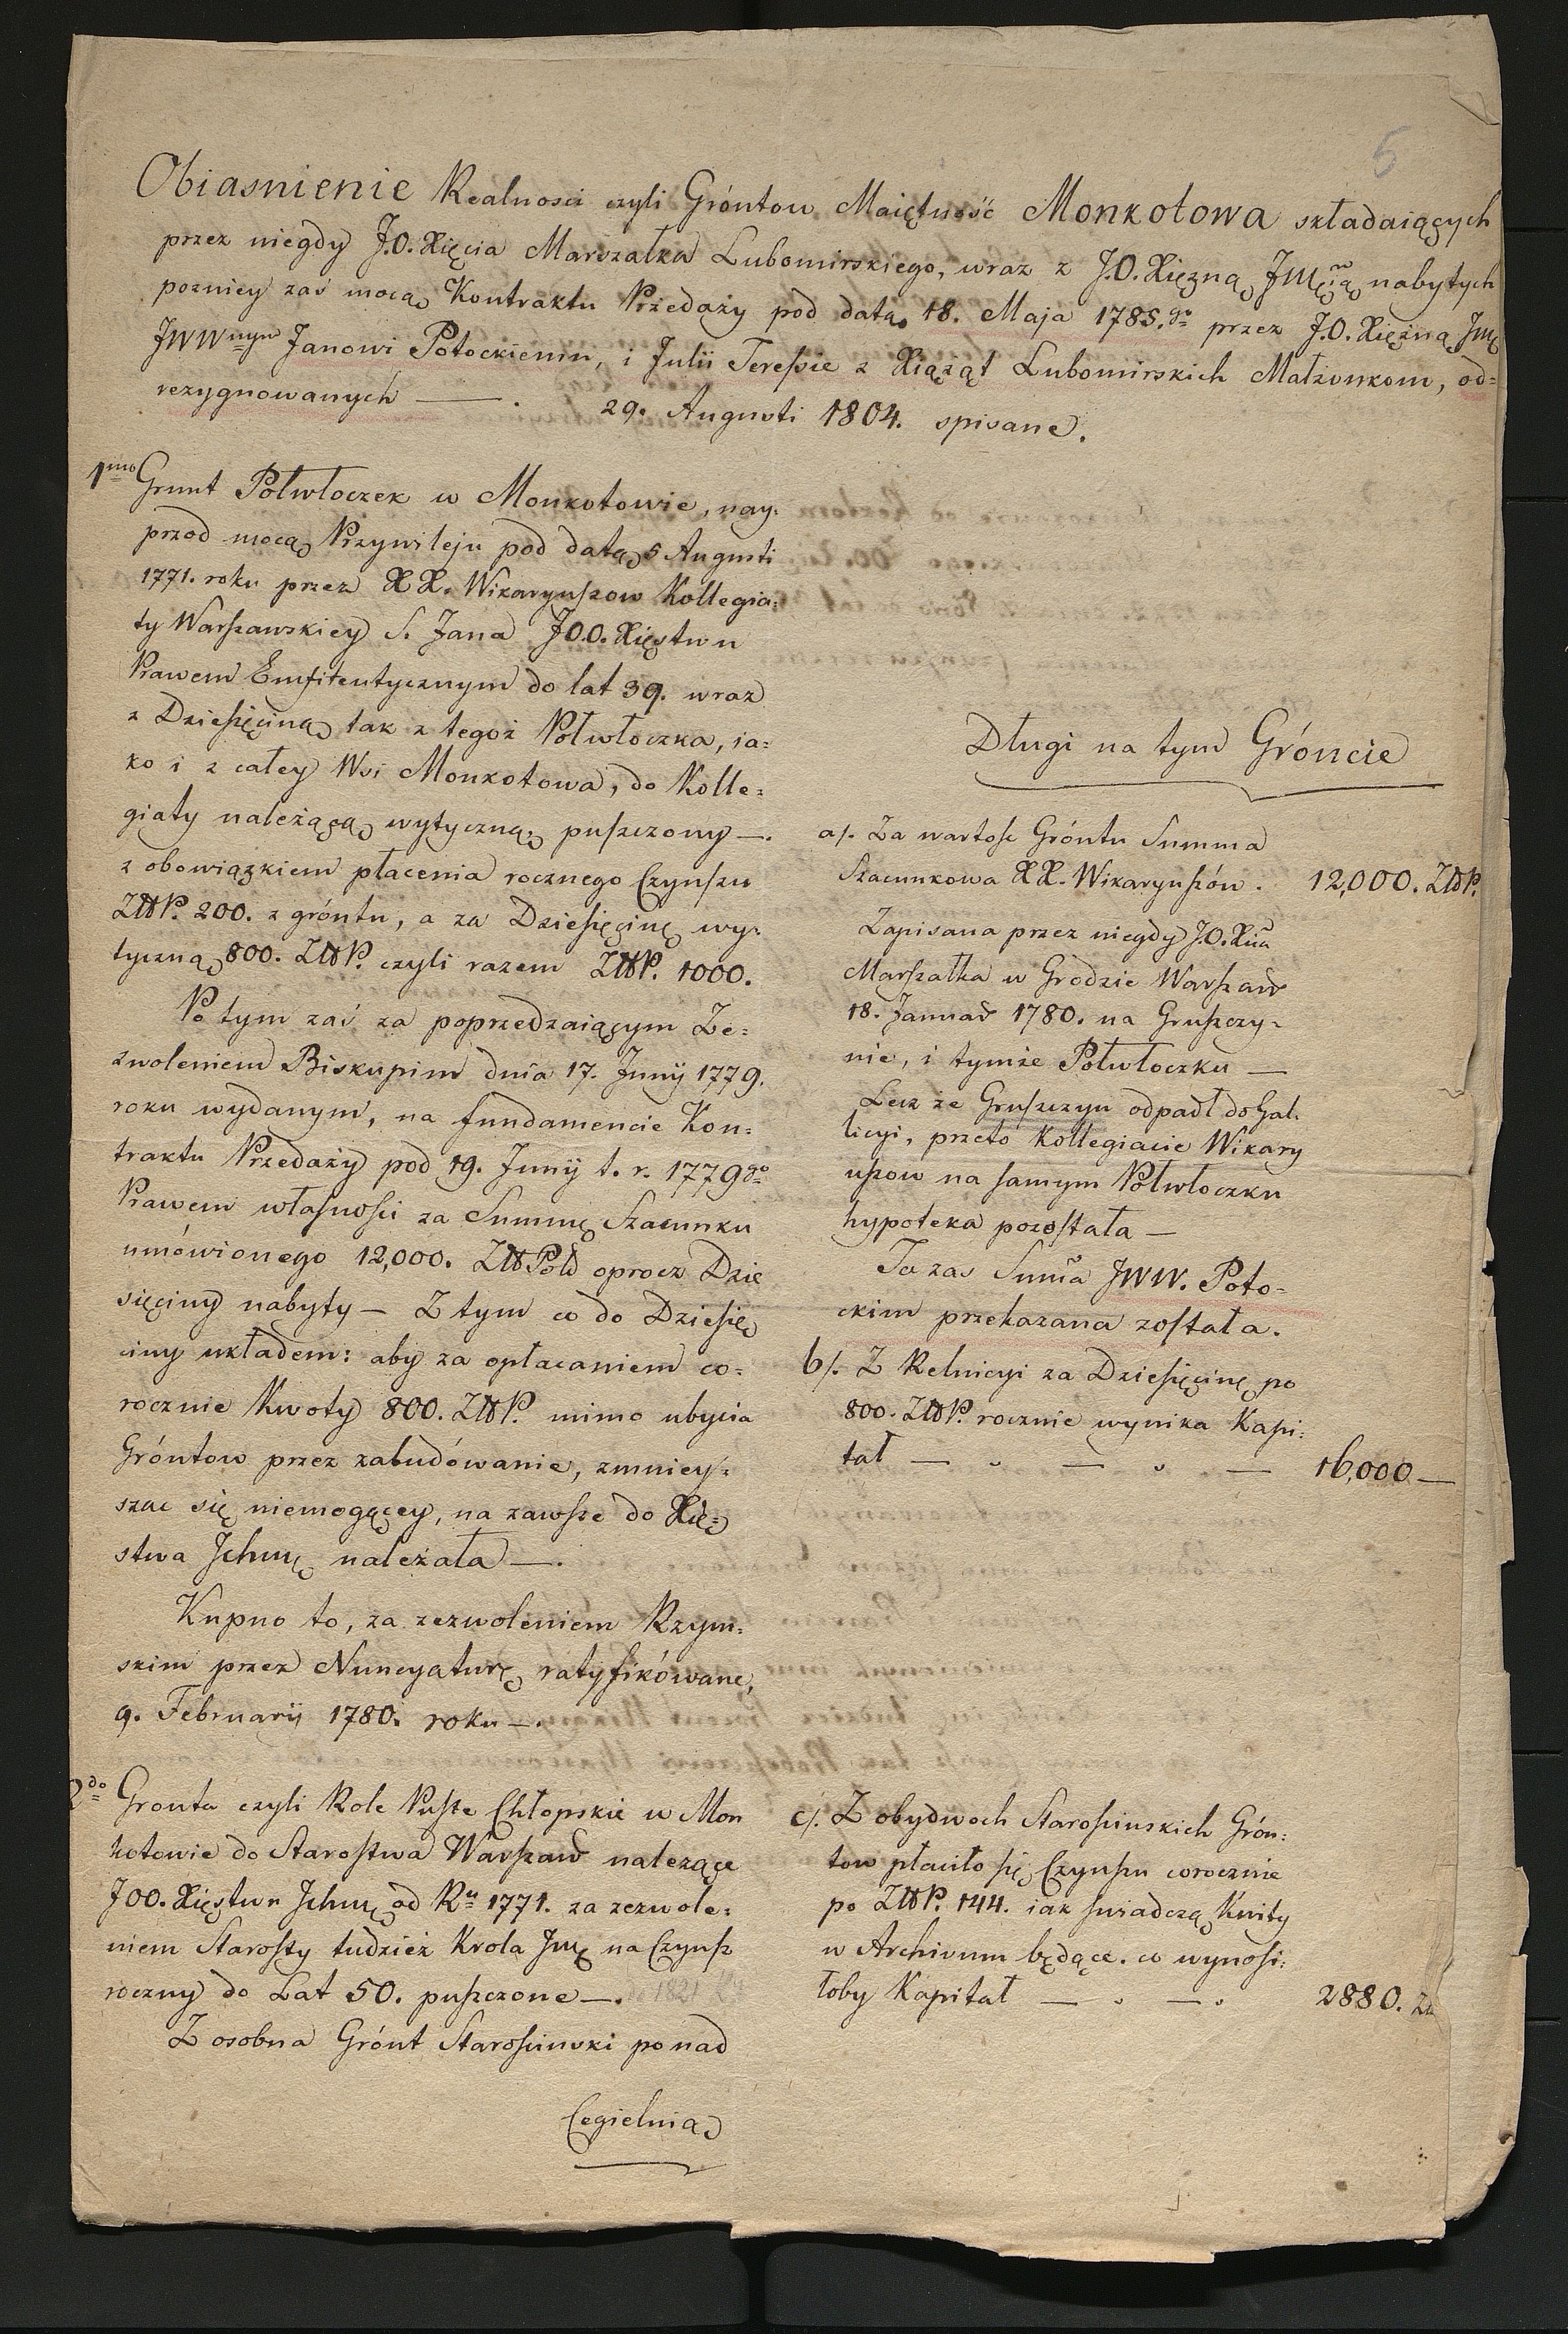 5
Obiasnienie Realnosci czyli Gróntow Maiętność Monkotowa składaiących
przez niegdy J.O. Xięcia Marszałka Lubomirskiego, wraz z J.O. Xiężną JMę nabytych
pozniey zaś mocą Kontraktu Przedaży pod datą 18. Maja 1785.go przez J.O. Xiężną JMę
JWWnym Janowi Potockiemu, i Julii Teressie z Xiążąt Lubomirskich Małżonkom, od=
rezygnowanych —— . 29. Augusti 1804. spisane.
1mo Grunt Połwłoczek w Monkotowie, nay=
przod mocą Przywileju pod datą 5 Augusti
1771. roku przez XX. Wikaryuszow Kollegia=
ty Warszawskiey S. Jana J.O.O. Xięstwu
Prawem Emfiteutycznym do lat 39. wraz
z Dziesięciną tak z tegoż Połwłoczka, ia=
ko i z całey Wsi Monkotowa, do Kolle=
giaty należącą wytyczną, puszczony —.
z obowiązkiem płacenia rocznego Czynszu
ZłłP. 200. z gróntu, a za Dziesięcinę wy=
tyczną 800. ZłłP. czyli razem ZłłP. 1000.
Po tym zaś za poprzedzaiącym Ze=
zwoleniem Biskupim dnia 17. Junij 1779.
roku wydanym, na fundamencie Kon=
traktu Przedaży pod 19. Junij t. r. 1779go
Prawem własności za Summę Szacunku
umówionego 12,000. Złł Pol oprocz Dzie
sięciny nabyty — Z tym co do Dziesię
ciny układem: aby za opłacaniem co=
rocznie Kwoty 800. ZłłP. mimo ubycia
Gróntow przez zabudówanie, zmniey=
szac się niemogącey, na zawsze do Xię=
stwa Jchmę należała —.
Kupno to, za zezwoleniem Rzym=
skim przez Nuncyaturę ratyfikówane,
9. Februarij 1780. roku —.
2do Gronta czyli Role Puste Chłopskie w Mon
kotowie do Starostwa Warszaw należące
JOO. Xięstwu Jchmę od Ru 1771. za zezwole=
niem Starosty tudzież Krola Jmę na Czynsz
roczny do Lat 50. puszczone —. 1821
Z osobna Grónt Starościnski ponad
Cegielnią
Długi na tym Gróncie
a/. Za wartosc Gróntu Summa
Szacunkowa XX. Wikaryuszów . 12,000. ZłłP.
Zapisana przez niegdy J.O. Xcia
Marszałka w Grodzie Warszaw
18. Januar 1780. na Gruszczy=
nie, i tymże Połwłoczku —
Lecz ze Gruszczyn odpadł do Gal=
licyi, przeto Kollegiacie Wikary
uszow na samym Połwłoczku
hypoteka pozostała —
Ta zas Suma JWW. Poto=
ckim przekazana została.
b/. Z Reluicyi za Dziesięcinę po
800. ZłłP. rocznie wynika Kapi=
tał — . — . — 16,000 —
c/. Z obydwoch Starościnskich Grón=
tow płaciło się Czynszu corocznie
po ZłłP. 144. iak swiadczą Kwity
w Archivum będące. co wynosi=
łoby Kapitał — . — . 2880.